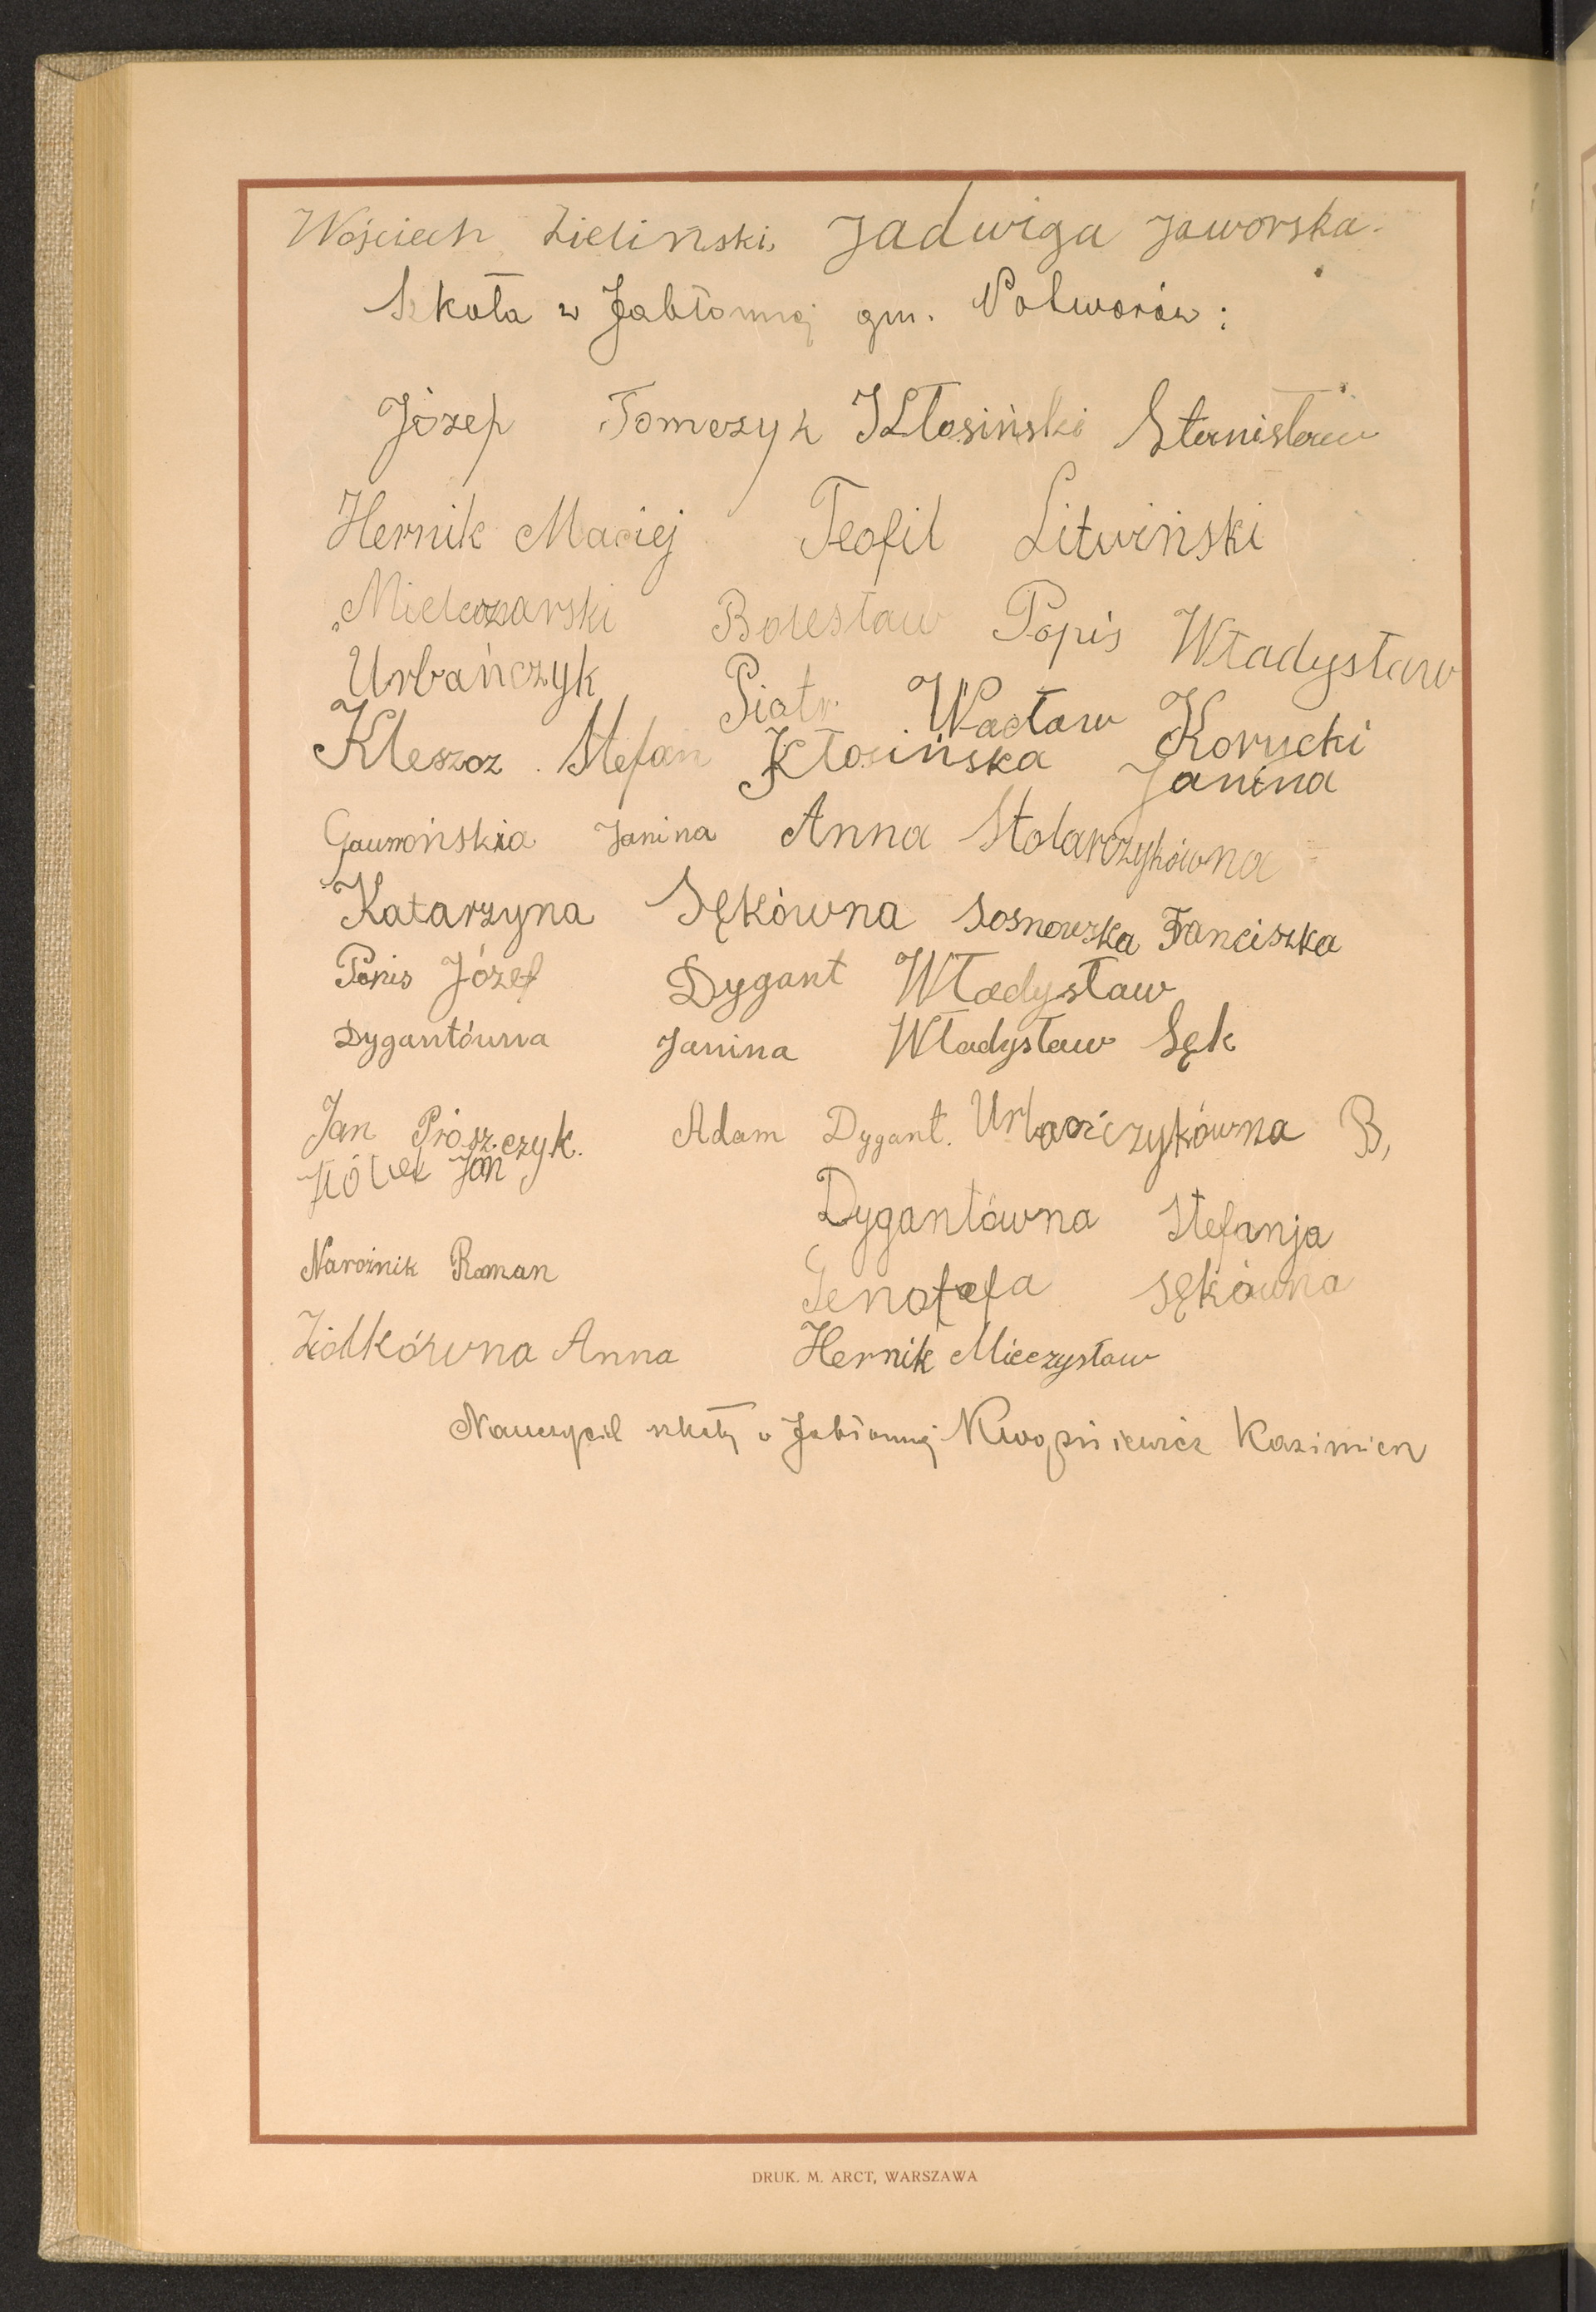 Wojciech Zieliński Jadwiga Jaworska.
Szkoła w Jabłonnej gm. Potworów:
Józef Tomczyk Kłosiński Stanisław
Hernik Maciej Teofil Litwiński
Mielczarski Bolesław Popis Władysław
Urbańczyk Piotr Wacław Korycki
Kleszcz Stefan Kłosińska Janina
Janina Anna Stolarczykówna
Katarzyna Sękówna Sosnowska Franciszka
Popis Józef Dygant Władysław
Dygantówna Janina Władysław Sęk
Jan Prószczyk. Adam Dygant. Urbańczykówna B,
Jan
Dygantówna Stefanja
Narożnik Roman
Genofefa Sękówna
Ziółkówna Anna Hernik Mieczysław
Nauczyciel szkoły w Jabłonnej Kazimierz
DRUK. M. ARCT, WARSZAWA